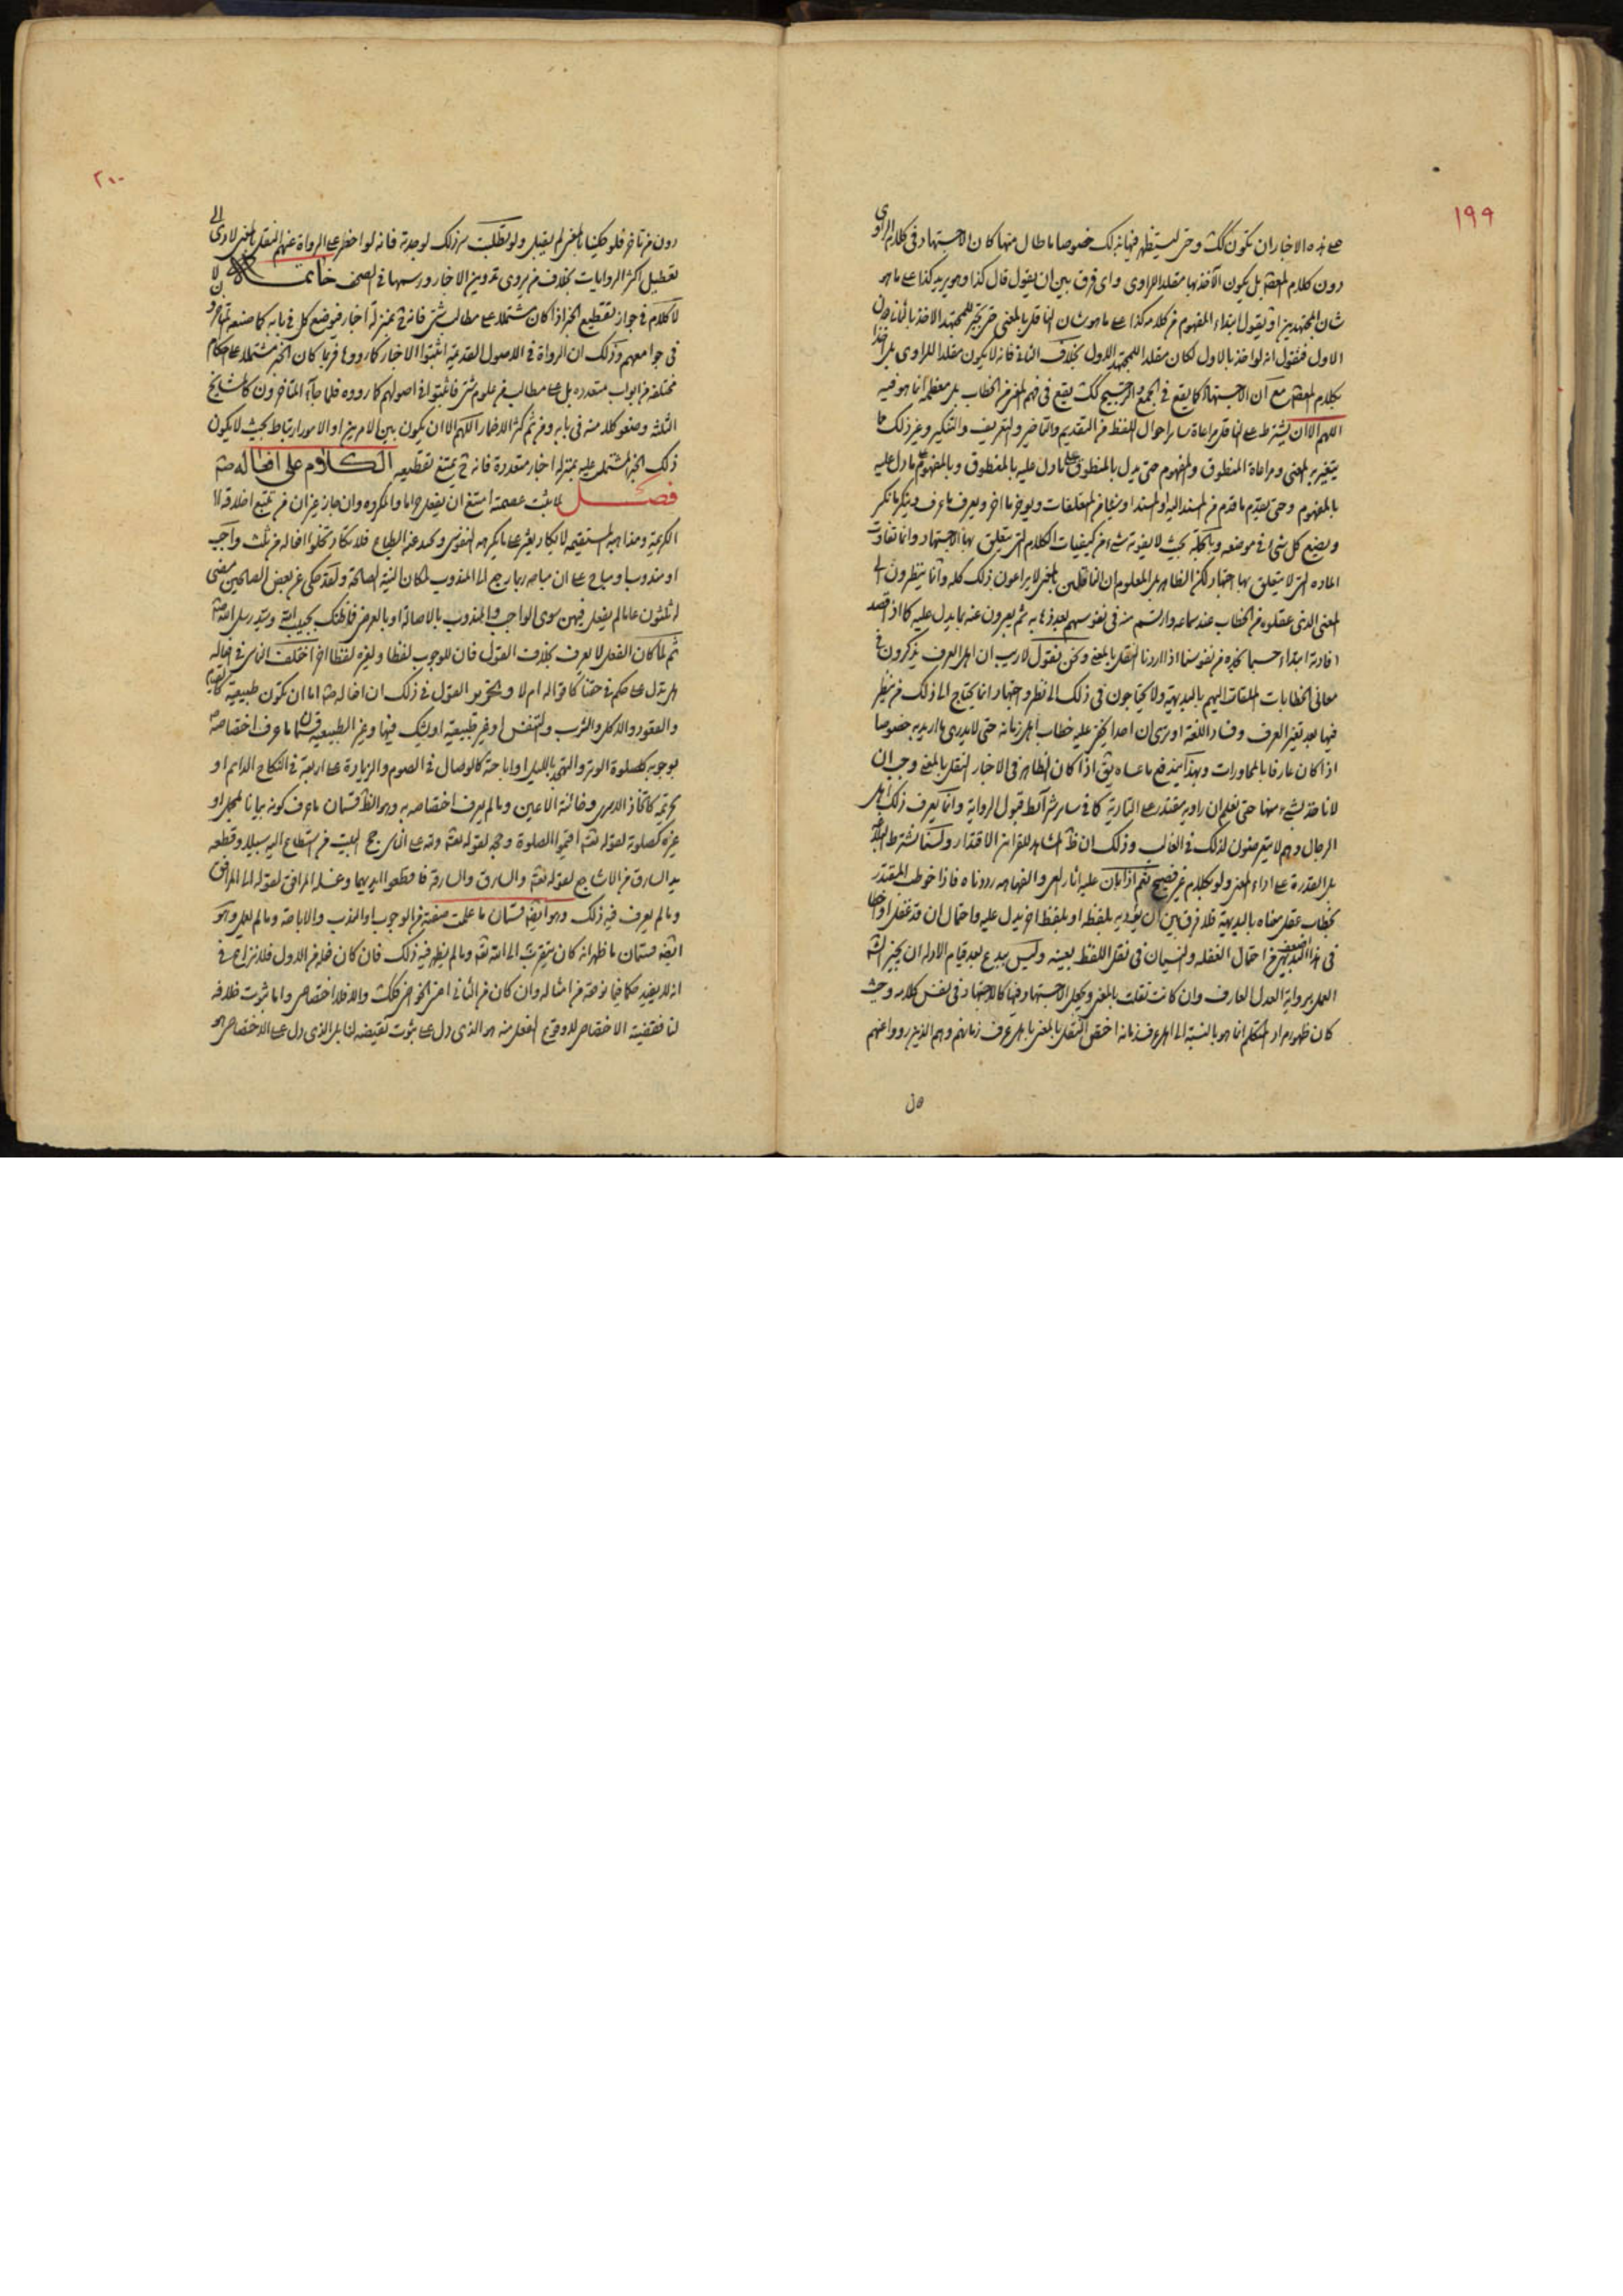 ١٩٩
هذه الاخبار ان تكون كك وحتى ليستظهر فيها ذلك خصوصا ما طال منها كان الاجتهاد فى كلام الراوى
دون كلام المعصوم بل يكون الآخذ بها مقلدا للراوى واى فرق بين ان يقول قال كذا وهو يريد كذا على ما هو
شان المجتهدين او يقول ابتداء المفهوم من كلامه كذا على ما هو شان الناقل بالمعنى حتى يجوز للمجتهد الاخذ بالثانى دون
الاول فنقول انه لو اخذ بالاول لكان مقلدا للمجتهد الاول بخلاف الثانى فانه لا يكون مقلدا للراوى بل اخذا
بكلام المعصوم مع ان الاجتهاد كما يقع فى الجمع والترجيح كك يقع فى فهم المعنى من الخطاب بل معظمه انما هو فيه
اللهم الا ان يشترط على الناقل مراعاة ساير احوال اللفظ من التقديم والتاخير والتعريف والتنكير وغير ذلك مما
يتغير به المعنى ومراعاة المنطوق والمفهوم حتى يدل بالمنطوق على ما دل عليه بالمنطوق وبالمفهوم على ما دل عليه
بالمفهوم وحتى يقدم ما قدم من المسند اليه او المسند او غيرهما من المتعلقات ويوخر ما اخر ويعرف ما عرف وينكر ما نكر
ويضع كل شئ فى موضعه وبالجملة بحيث لا يفوته شئ من كيفيات الكلام التى يتعلق بها الاجتهاد وانما تفاوت
الماده التى لا يتعلق بها اجتهاد لكن الظاهر بل المعلوم ان الناقلين بالمعنى لا يراعون ذلك كله وانما ينظرون الى
المعنى الذى عقلوه من الخطاب عند سماعه وارتسم منه فى نفوسهم بعد ذهابه ثم يعبرون عنه بما يدل عليه كما اذا قصد
افادته ابتداء حسبما نجده من نفوسنا اذا اردنا النقل بالمعنى ونحن نقول لا ريب ان اهل العرف يذكرون
معانى الخطابات الملقات اليهم بالبديهة ولا يحتاجون فى ذلك الى نظر واجتهاد انما يحتاج الى ذلك من ينظر
فيها بعد تغير العرف وفساد اللغة او ترى ان احدا يخفى عليه خطاب اهل زمانه حتى لا يدرى ما اريد به خصوصا
اذا كان عارفا بالمحاورات وبهذا يندفع ما عساه يق اذا كان الظاهر فى الاخبار النقل بالمعنى وجب ان
لا ناخذ بشئ منها حتى نعلم ان راويه مقتدر على التادية كما فى ساير شرائط قبول الرواية وانما يعرف ذلك اهل
الرجال وهم لا يتعرضون لذلك فى الغالب وذلك ان ظ المشاهد للقرائن الاقتدار ولسنا نشترط البلاغة
بل القدرة على اداء المعنى ولو بكلام غير فصيح نعم اذا بان عليه اثار العى والفهاهه رددناه فاذا خوطب المقتدر
بخطاب عقل معناه بالبديهة فلا فرق بين ان يؤديه بلفظه او بلفظ اخر يدل عليه واحتمال ان قد غفل او اخطا
فى هذا التعبير من احتمال الغفله والنسيان فى نقل اللفظ بعينه وليس ببدع بعد قيام الادله ان يجيز الشم
العمل برواية العدل العارف وان كانت نقلت بالمعنى ويجعل الاجتهاد فيها كالاجتهاد فى نفس كلامه وحيث
كان ظهور مراد المتكلم انما هو بالنسبة الى اهل عرف زمانه اختص النقل بالمعنى باهل عرف زمانهم وهم الذين رووا عنهم
٢٠٠
دون من تاخر فلو حكينا بالمعنى لم يقبل ولو تطلبت سر ذلك لوجدته فانه لو احظر على الرواة عنهم النقل بالمعنى لادى الى
تعطيل اكثر الروايات بخلاف من يروى تدوين الاخبار ورسمها فى الصحف خاتمة
لا كلام فى جواز تقطيع الخبر اذا كان مشتملا على مطالب شتى فانه ح بمنزلة اخبار فيوضع كل فى بابه كما صنعه المتاخرون
فى جوامعهم وذلك ان الرواة فى الاصول القديمة اثبتوا الاخبار كما رووها فربما كان الخبر مشتملا على احكام
مختلفه من ابواب متعدده بل على مطالب من علوم شتى فاثبتوا فى اصولهم كما رووه فلما جاء المتاخرون كالمشايخ
الثلثه وضعو كلا منه فى بابه ومن ثم كثر الاخبار اللهم الا ان يكون بين الامرين او الامور ارتباط بحيث لا يكون
ذلك الخبر المشتمل عليه بمنزله اخبار متعددة فانه ح يمتنع تقطيعه الكلام على افعاله صم
فصل لما ثبت عصمته امتنع ان يفعل حراما واما المكروه وان جاز غير ان من تتبع اخلاقه
الكريمة ومذاهبه المستقيمه لا يكاد يعثر على ما يكرهه النفوس ويحيد عنه الطباع فلا تكاد تخلوا افعاله من ثلث واجب
او مندوب او مباح على ان مباحه ربما رجع الى المندوب لمكان النية الصالحة ولقد حكى عن بعض الصالحين مضى
له ثلثون عاما لم يفعل فيهن سوى الواجب والمندوب بالاصالة او بالعرض فما ظنك بحبيب الله وسيد رسل الله صم
ثم لما كان الفعل لا يعرف بخلاف القول فان للوجوب لفظا ولغيره لفظا اخر اختلف الناس فى افعاله
هل تدل على حكم فى حقنا كاقواله ام لا وتحرير القول فى ذلك ان افعاله صم اما ان تكون طبيعية كالقيام
والقعود والاكل والشرب والتنفس او غير طبيعية او يشك فيها وغير الطبيعيه قسمان ما عرف اختصاصه
بوجوبه كصلوة الوتر والتهجد بالليل او اباحته كالوصال فى الصوم والزيادة على اربعة فى النكاح الدايم او
تحريمه كانخاذ الدسرى وخائنة الاعين وما لم يعرف اختصاصه به وهو الظ قسمان ما عرف كونه بيانا لمجمل او
غيره كصلوته لقوله تعم اقيموا الصلوة وحجه لقوله تعم ولله على الناس حج البيت من استطاع اليه سبيلا وقطعه
يد السارق من الاشاجع لقوله تعم والسارق والسارقة فاقطعوا ايديهما وغسله المرافق لقوله الى المرافق
وما لم يعرف فيه ذلك وهو ايضا قسمان ما علمت صفته من الوجوب او الندب والاباحة وما لم يعلم وهو
ايضا قسمان ما ظهر انه كان يتقرب به الى الله تعم وما لم يظهر فيه ذلك فان كان فعله من الاول فلا نزاع فى
انه لا يفيد حكما فيما نوخذ من امثاله وان كان من الثانى اعنى الخواص فكك والا فلا اختصاص واما ثبوت خلافه
لنا فقضية الاختصاص لا وقوع الفعل منه هو الذى دل على ثبوت نقيضه لنا بل الذى دل على الاختصاص هو